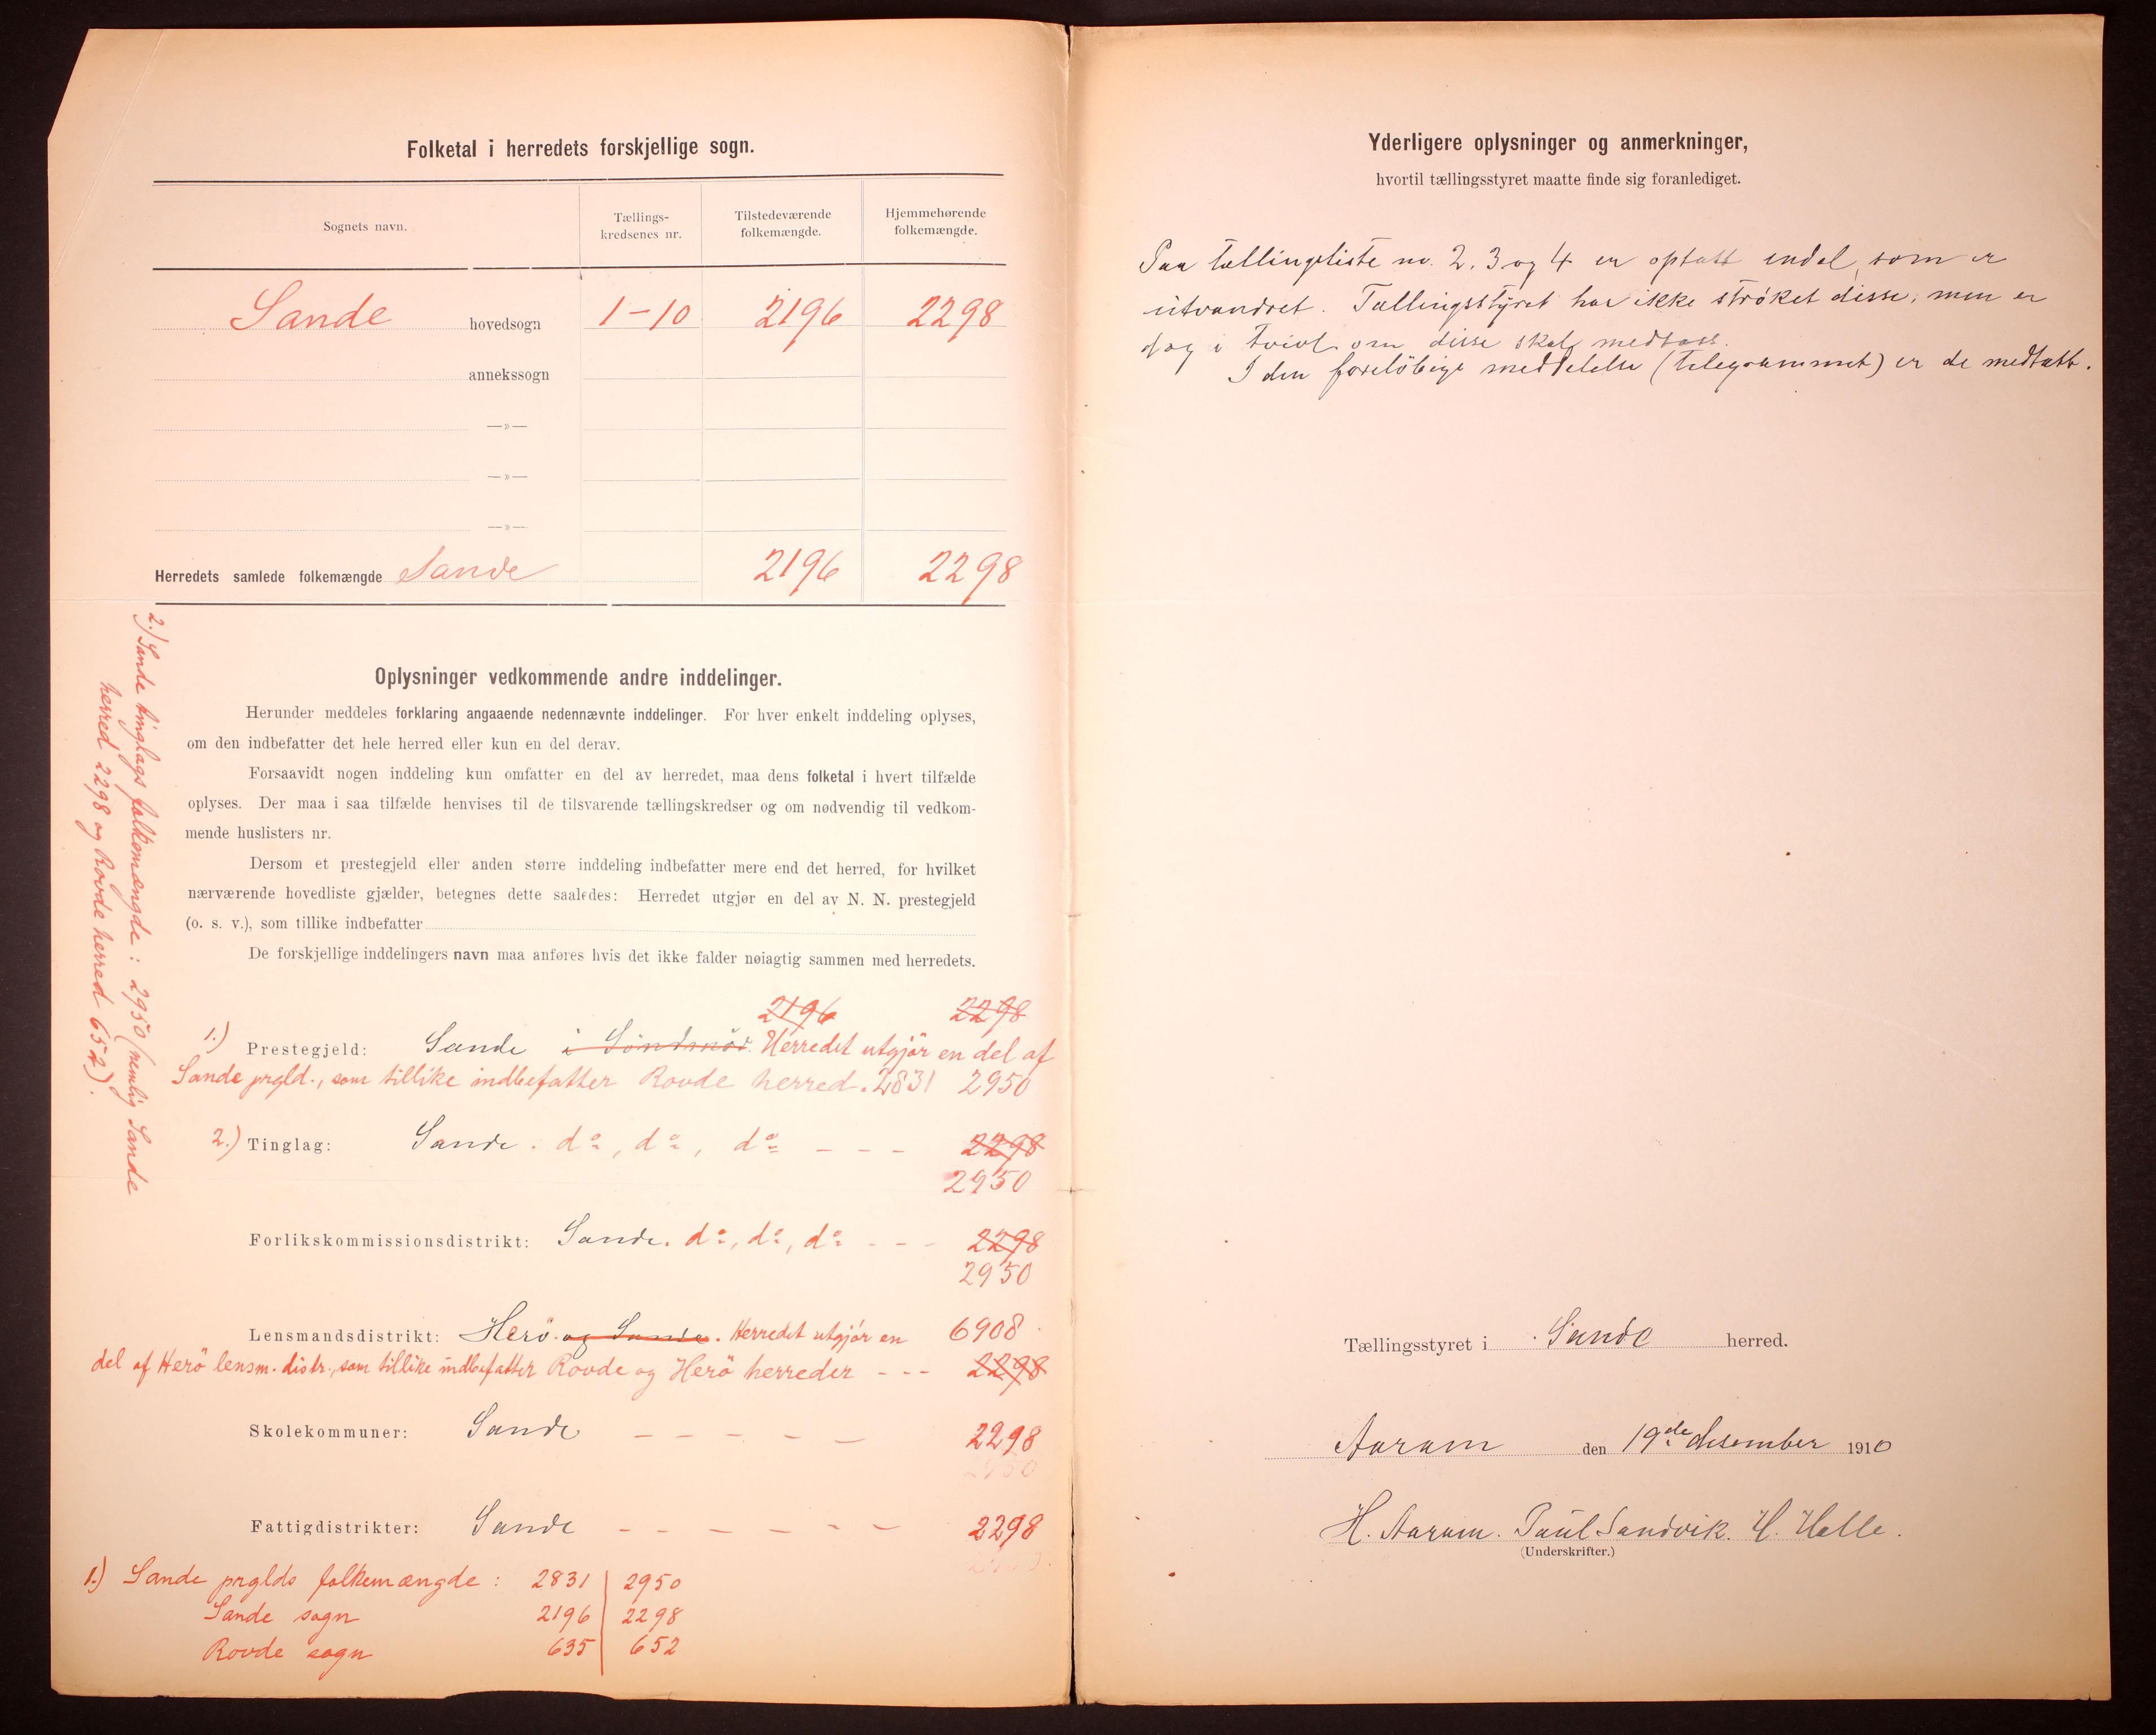 Folketal i herredets forskjellige sogn.
Sognets navn.
Tællings-
kredsenes nr.
Tilstedeværende
folkemængde.
Hjemmehørende
folkemængde.
Sande hovedsogn 1-10 2196 2298
annekssogn
—»—
—»—
—»—
Herredets samlede folkemængde Sande 2196 2298
Oplysninger vedkommende andre inddelinger.
Herunder meddeles forklaring angaaende nedennævnte inddelinger. For hver enkelt inddeling oplyses,
om den indbefatter det hele herred eller kun en del derav.
Forsaavidt nogen inddeling kun omfatter en del av herredet, maa dens folketal i hvert tilfælde
oplyses. Der maa i saa tilfælde henvises til de tilsvarende tællingskredser og om nødvendig til vedkom-
mende huslisters nr.
Dersom et prestegjeld eller anden større inddeling indbefatter mere end det herred, for hvilket
nærværende hovedliste gjælder, betegnes dette saaledes: Herredet utgjør en del av N. N. prestegjeld
(o. s. v.), som tillike indbefatter
De forskjellige inddelingers navn maa anføres hvis det ikke falder nøiagtig sammen med herredets.
2196 2298
1.) Prestegjeld: Sande i Söndmör. Herredet utgjör en del af
Sande prgld., som tillike indbefatter Rovde herred. 2831 2950
2.) Tinglag: Sande. do, do, do - - - 2298
2950
Forlikskommissionsdistrikt: Sande. do, do, do - - - 2298
2950
Lensmandsdistrikt: Herö og Sande. Herredet utgjör en 6908
del af Herö lensm. distr., som tillike indbefatter Rovde og Herö herreder - - - 2298
Skolekommuner: Sande - - - - - 2298
2950
Fattigdistrikter: Sande - - - - - - 2298
1.) Sande prglds folkemængde: 2831 2950
Sande sogn 2196 2298
Rovde sogn 635 652
2.) Sande tinglags folkemængde: 2950 (nemlig Sande
herred 2298 og Rovde herred 652).
Yderligere oplysninger og anmerkninger,
hvortil tællingsstyret maatte finde sig foranlediget.
Paa tællingsliste no. 2, 3 og 4 er optatt endel, som er
utvandret. Tællingsstyret har ikke ströket disse, men er
dog i tvivl om disse skal medtass.
I den forelöbige meddelelse (telegrammet) er de medtatt.
Tællingsstyret i Sande herred.
Aaram den 19de desember 1910
H. Aaram. Paul Sandvik. H. Helle.
(Underskrifter.)